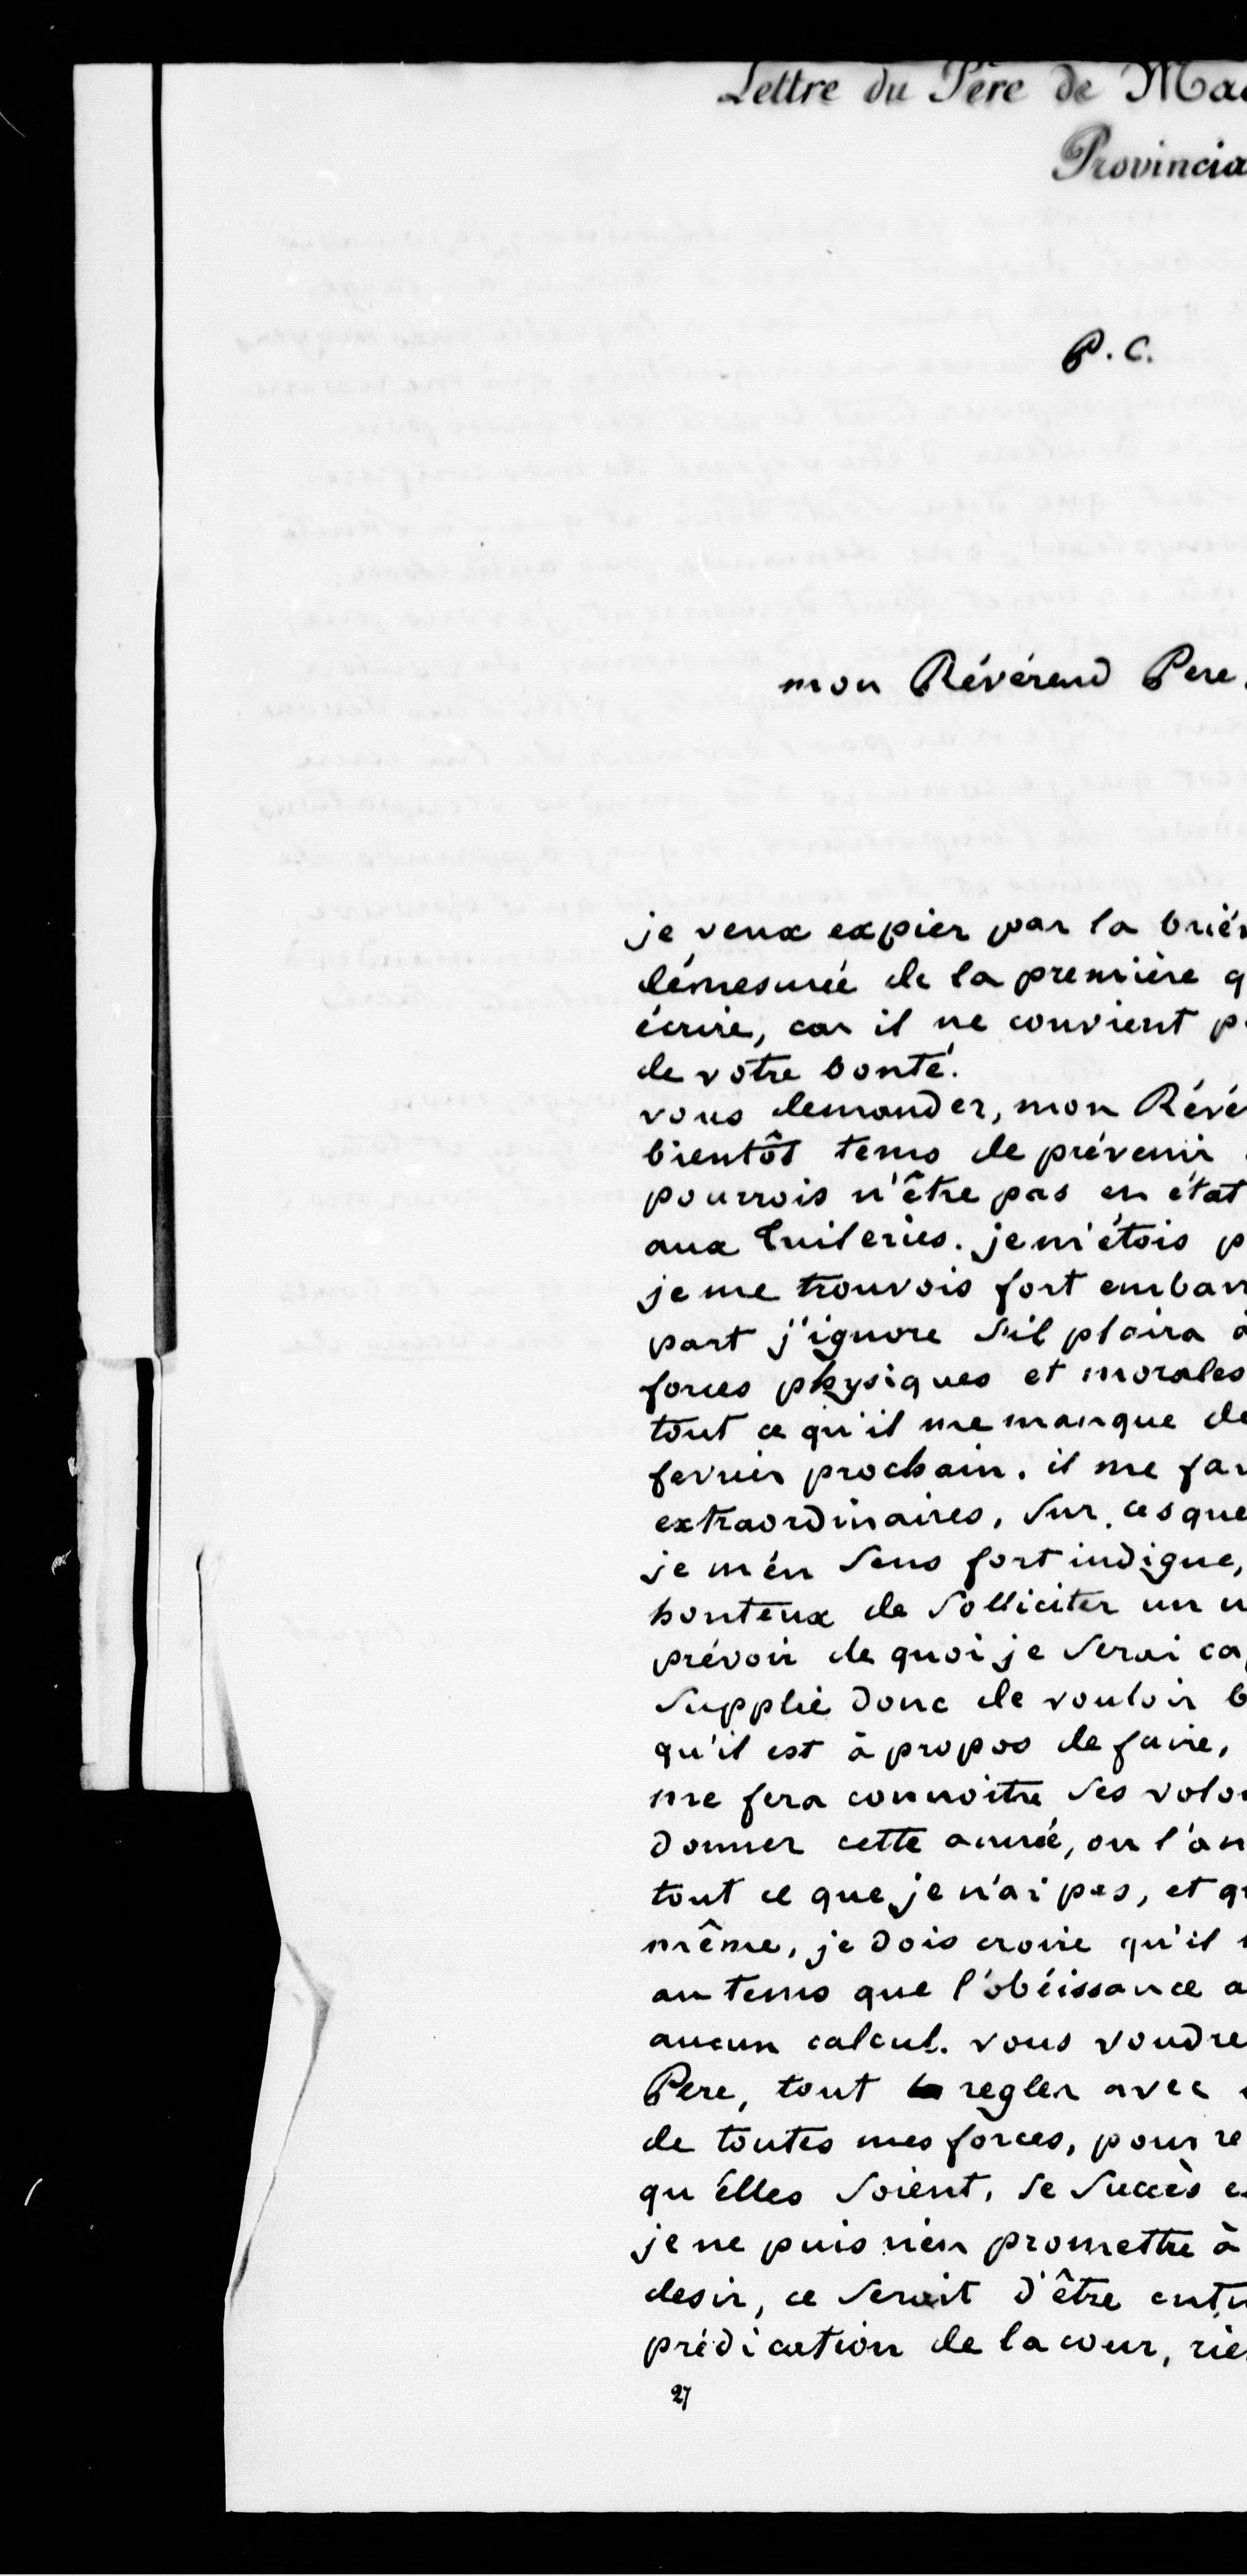 Lettre du Père de Mac
Provincia
P. C.
mon Révérend Pere.
je veux expier par la briév
démesurée de la première q
écrire, car il ne convient p
de votre bonté.
vous demander, mon Révé
bientôt tems de prévenir
pourrois n'être pas en état
aux Tuileries. je m'étois p
je me trouvois fort embar
part j'ignore s'il plaira à
forces physiques et morales
tout ce qu'il me manque de
fevrier prochain. il me fau
extraordinaires, sur ces que
je m'én sens fort indigne,
honteux de solliciter un
prévoir de quoi je serai ca
supplie donc de vouloir b
qu'il est à propos de faire,
me fera connoître ses volon
donner cette année, ou l'an
tout ce que je n'ai pas, et q
même, je dois croire qu'il
au tems que l'obéissance a
aucun calcul. vous voudre
Pere, tout regler avec
de toutes mes forces, pour re
qu'Elles soient, le succès e
je ne puis rien promettre à
desir, ce seroit d'être enti
prédication de la cour, rie
27